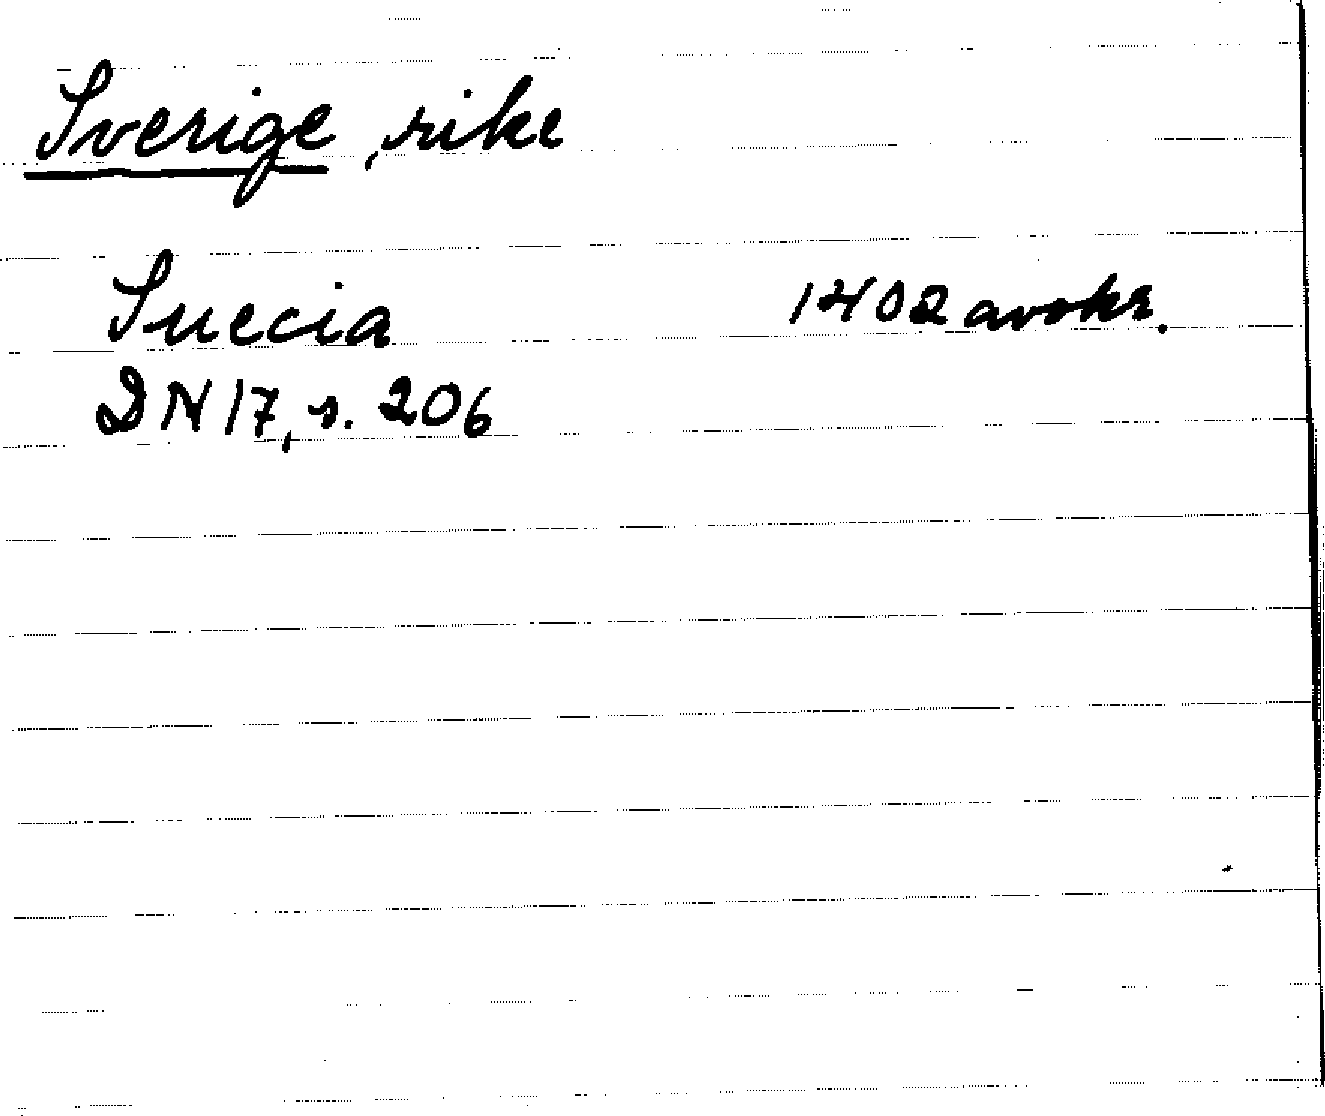 Sverige, rike
Suecia 1402 avskr.
DN 17, s. 206